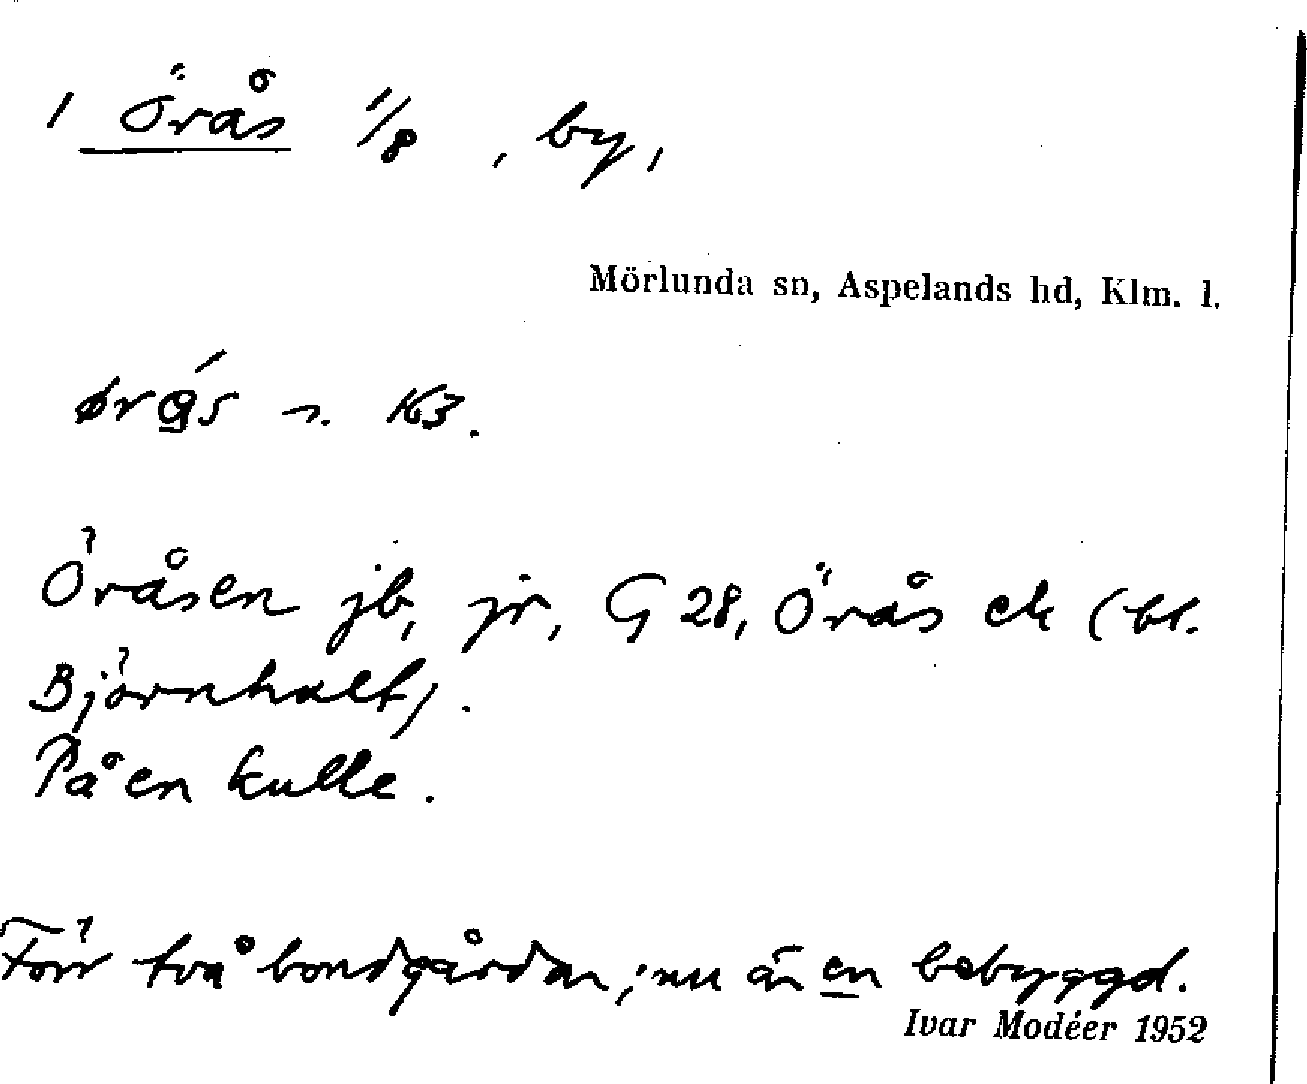 1 Örås 1/8, by,
Mörlunda sn, Aspelands hd, Klm. l.
ørås n. K3.
Öråsen jb, jr, G 28, Örås ek (bl.
Björnhalt).
På en kulle.
Förr två bondgårdar; nu är en bebyggd.
Ivar Modéer 1952